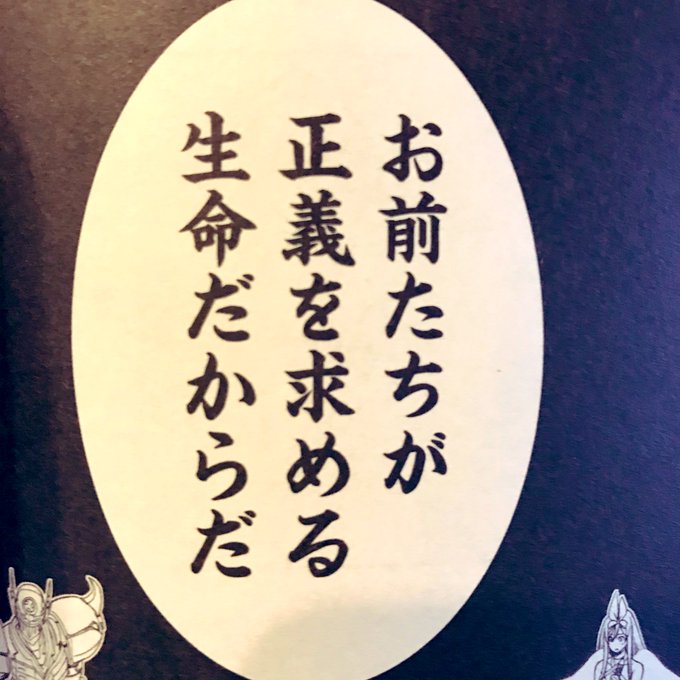 お前たちが
正義を求める
生命だからだ